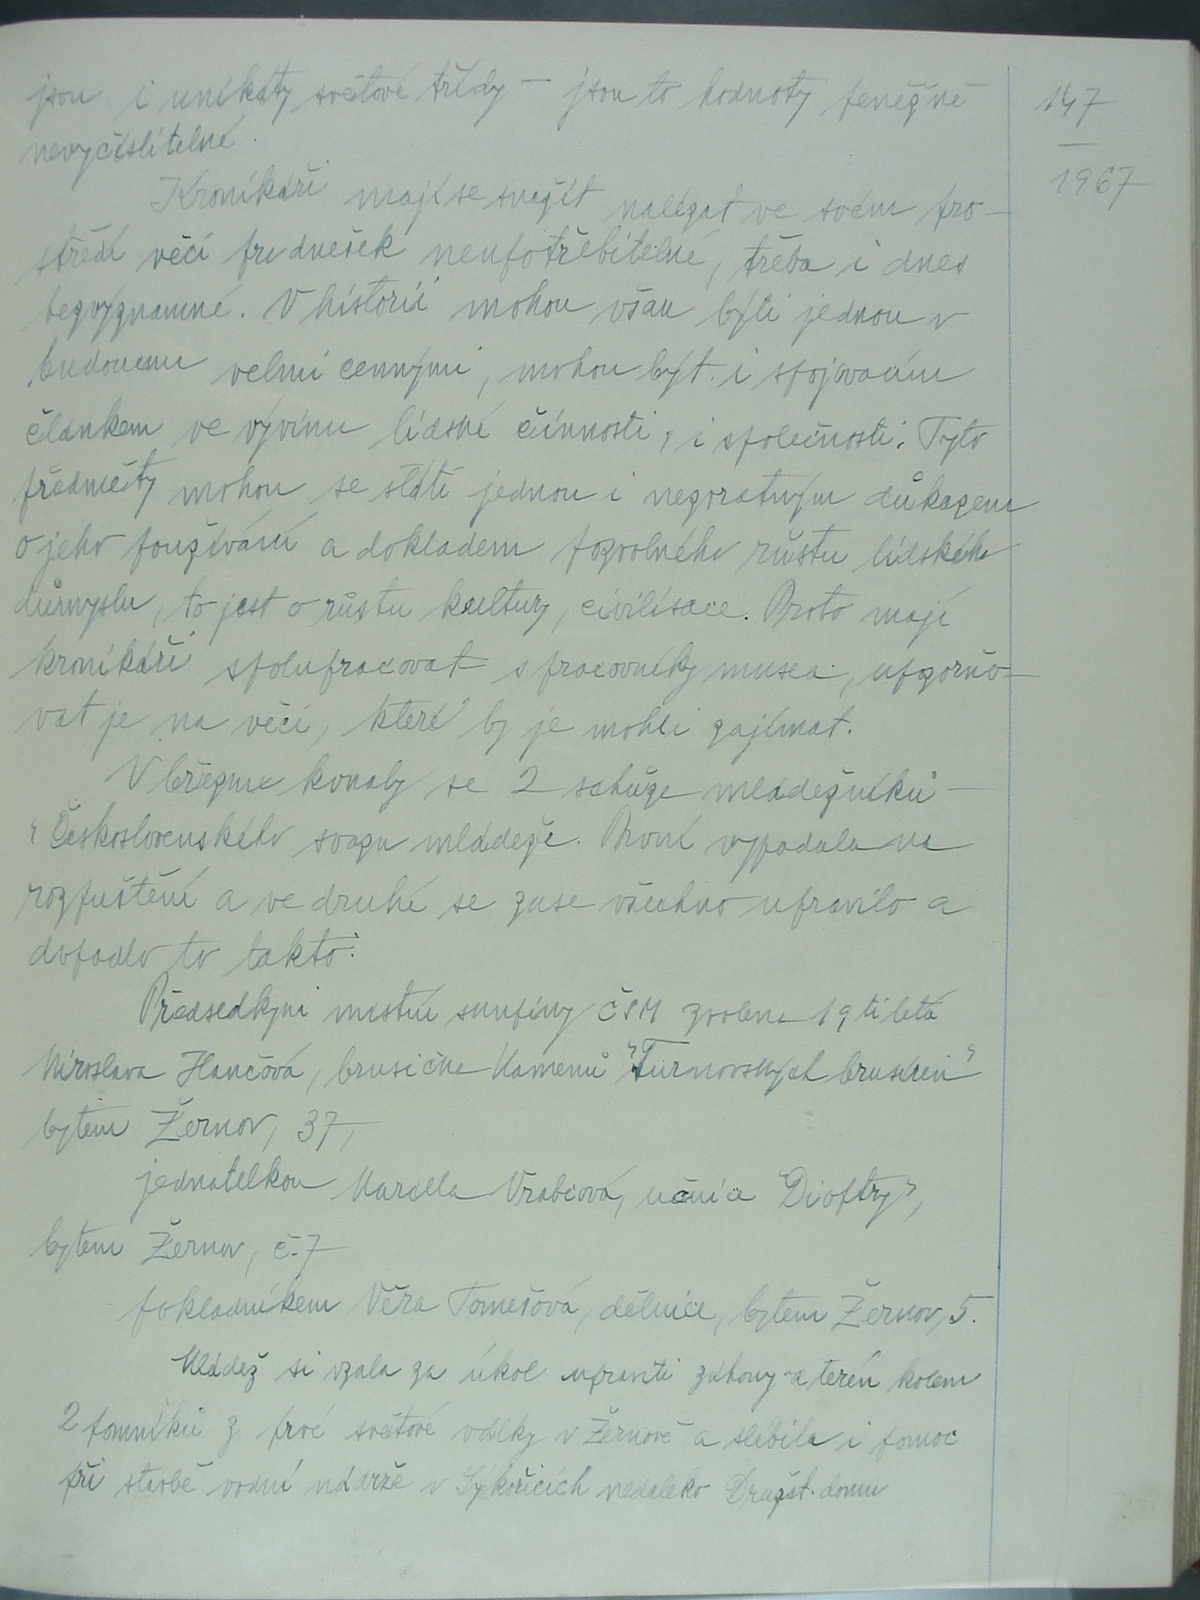 jsou i unikáty světové třídy — jsou to hodnoty peněžně
147
nevyčíslitelné.
—
1967
Kronikáři mají se snažit nalézat ve svém pro-
středí věcí pro dnešek neupotřebitelné, třeba i dnes
bezvýznamné. V historii mohou však býti jednou v
budoucnu velmi cennými, mohou být i spojovacím
článkem ve vývinu lidské činnosti, i společnosti. Tyto
předměty mohou se státi jednou i nezvratným důkazem
o jeho používání a dokladem pozvolného růstu lidského
důmyslu, to jest o růstu kultury, civilisace. Proto mají
kronikáři spolupracovat s pracovníky musea, upozorňo-
vat je na věci, které by je mohli zajímat.
V březnu konaly se 2 schůze mládežníků —
"Československého svazu mládeže. První vypadala na
rozpuštění a ve druhé se zase všechno upravilo a
dopadlo to takto:
Předsedkyní místní skupiny ČSM zvolena 19 tiletá
Miroslava Hančová, brusička kamenů "Turnovských brusíren"
bytem Žernov, 37,
jednatelkou Marcella Vrabcová, učnice "Dioptry",
bytem Žernov, č. 7
pokladníkem Věra Tomešová, dělnice, bytem Žernov, 5.
Mládež si vzala za úkol upraviti záhony a terén kolem
2 pomníků z prvé světové války v Žernově a slíbila i pomoc
při stavbě vodní nádrže v Sýkořicích nedaleko Družst. domu